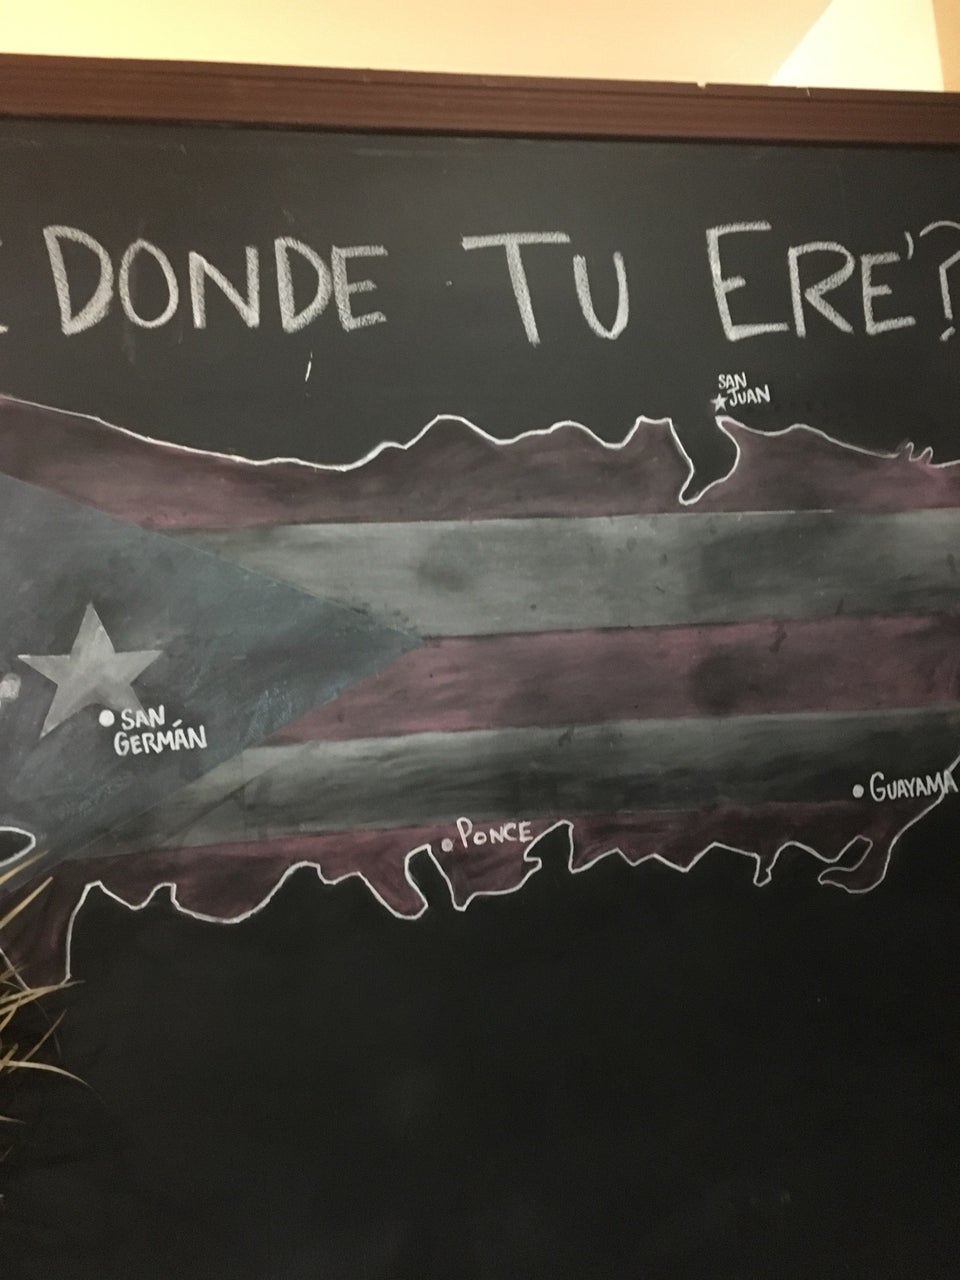 DONDE TU ERE'?
SAN
JUAN
SAN
GERMÁN
PONCE
GUAYAMA